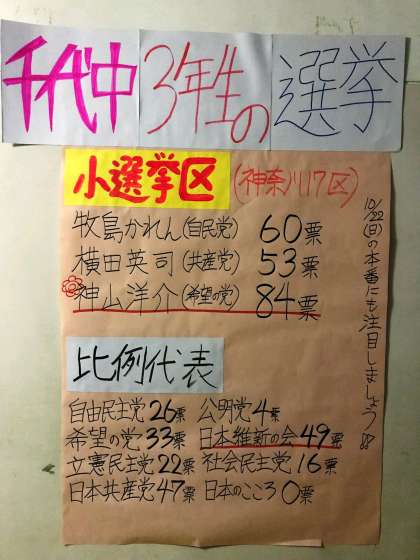 千代中 3年生の 選挙
小選挙区 (神奈川17区)
牧島かれん(自民党) 60票
横田英司(共産党) 53票
神山洋介(希望の党) 84票
10/22(日)の本番にも注目しましょう!!
比例代表
自由民主党 26票 公明党 4票
希望の党 33票 日本維新の会 49票
立憲民主党 22票 社会民主党 16票
日本共産党 47票 日本のこころ 0票